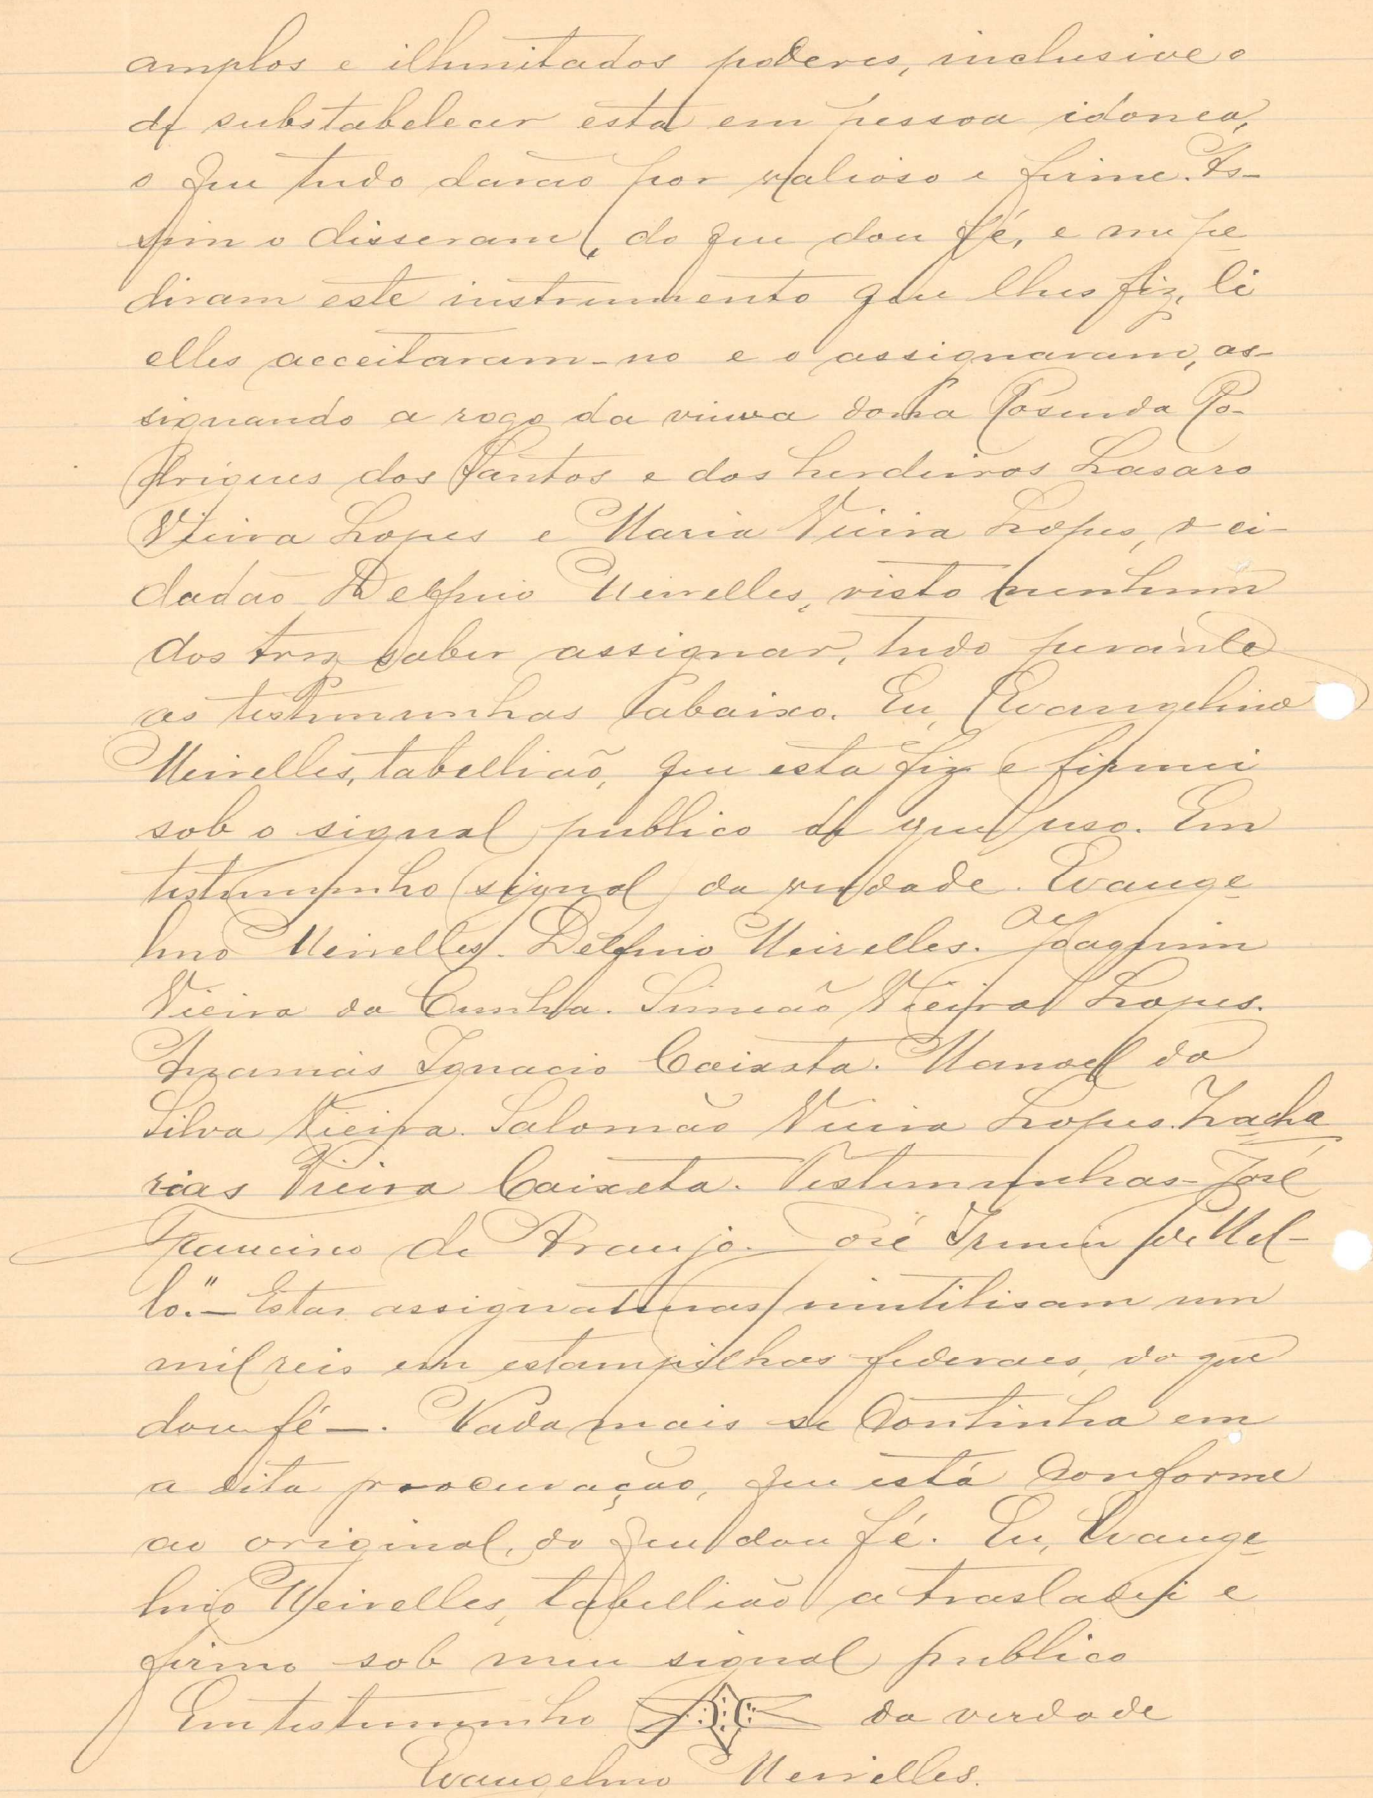 amplos e illimitados poderes, inclusive o
de substabelecer esta em pessoa idonea,
o que tudo darão por valioso e firme. As-
sim o disseram, do que dou fé, e me pe
diram este instrumento que lhes fiz, li
elles acceitaram-no e o assignaram, as-
signando a rogo da viuva dona Rosenda Ro-
drigues dos Santos e dos herdeiros Lasaro
Vieira Lopes e Maria Vieira Lopes, o ci-
dadão Delfino Meirelles, visto nenhum
dos trez saber assignar, tudo perante
as testimunhas abaixo. Eu, Evangelino
Meirelles, tabellião, que esta fiz e firmei
sob o signal publico de que uso. Em
testimunho (signal) da verdade. Evange
lino Meirelles. Delfino Meirelles. Joaquim
Vieira da Cunha. Simeão Vieira Lopes.
Ananias Ignacio Caixeta. Manoel da
Silva Vieira. Salomão Vieira Lopes. Zacha
rias Vieira Caixeta. Testimunhas - José
Francisco de Araujo. José Irineu de Mel-
lo." - Estas assignaturas inutilisam um
mil reis em estampilhas federaes, do que
dou fé -. Nada mais se continha em
a dita procuração, que está conforme
ao original, do que dou fé. Eu, Evange
lino Meirelles, tabellião a trasladei e
firmo sob meu signal publico
Em testimunho da verdade
Evangelino Meirelles.